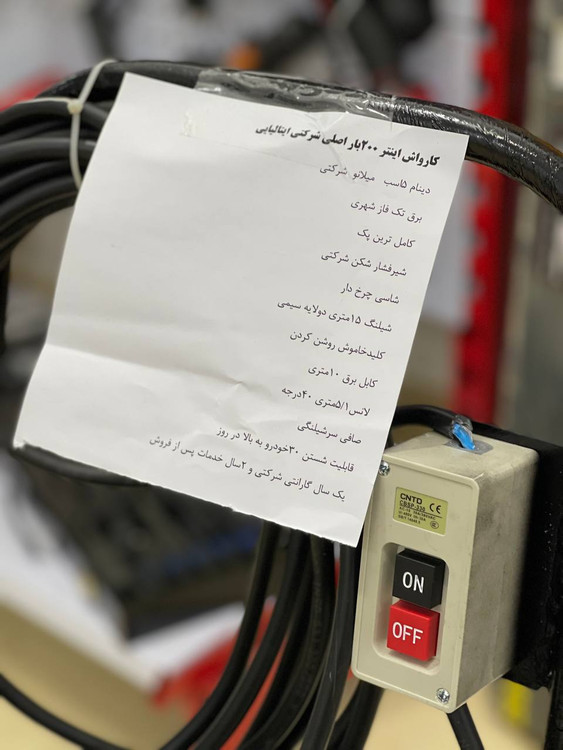 کارواش اینتر ۲۰۰بار اصلی شرکتی ایتالیایی
دینام ۵اسب میلانو شرکتی
برق تک فاز شهری
کامل ترین پک
شیرفشار شکن شرکتی
شاسی چرخ دار
شیلنگ ۱۵متری دولایه سیمی
کلیدخاموش روشن کردن
کابل برق ۱۰متری
لانس۵/۱متری ۴۰درجه
صافی سرشیلنگی
قابلیت شستن ۳۰خودرو به بالا در روز
یک سال گارانتی شرکتی و ۲سال خدمات پس از فروش
CNTD CE
CBSP-330
ON
OFF